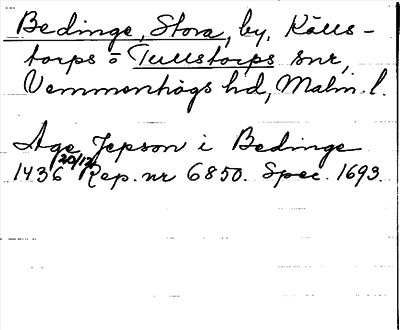 Bedinge, Stora, by, Källs-
torps o Tullstorps snr,
Vemmenhögs hd, Malm. l.
Åge Jepson i Bedinge
1436 20/12 Rep. nr 6850. Spec. 1693.